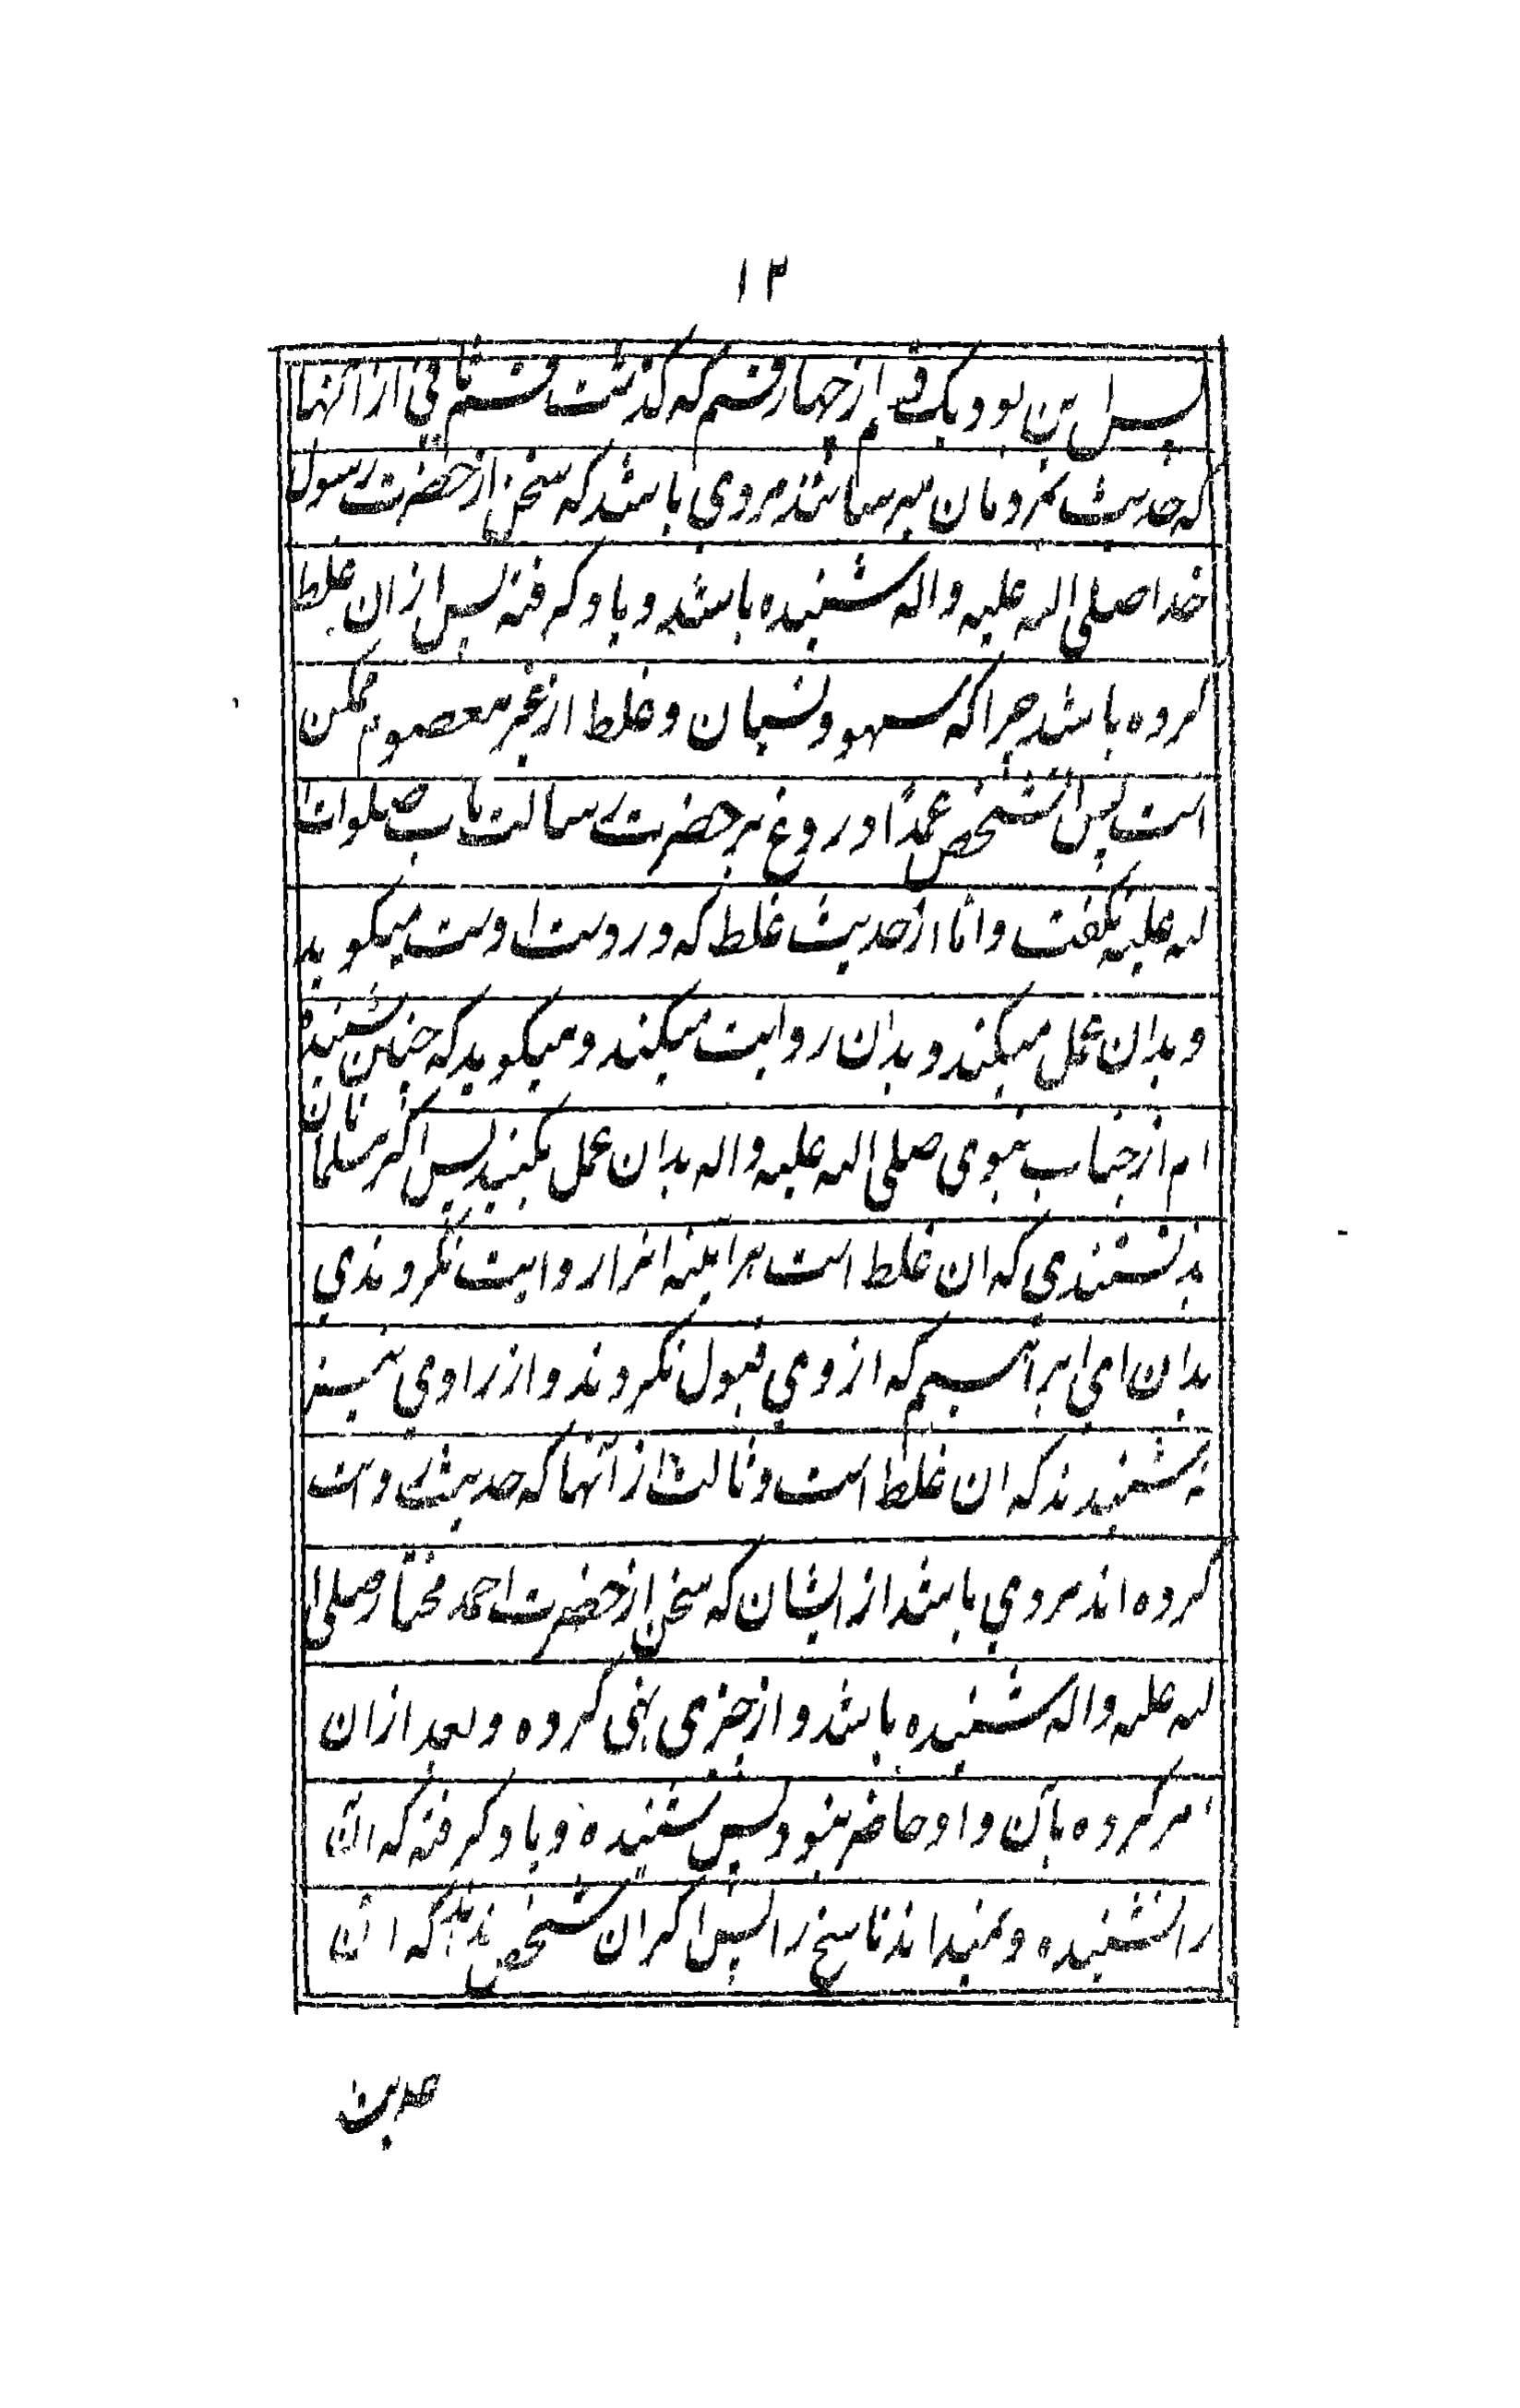 ۱۲
پس این بود یک قسم از چهار قسم که گذشت قسم ثانی از آنها
که حدیث بمردمان میرسانند مردی باشد که سخن از حضرت رسول
خدا صلی الله علیه و اله شنیده باشد و یاد گرفته پس ازان غلط
کرده باشد چراکه سهو و نسیان و غلط از غیر معصوم ممکن
است پس آنشخص عمداً دروغ بر حضرت رسالت ماب صلوات ا
لله علیه نگفت و اما از حدیث غلط که در دست اوست میگوید
و بدان عمل میکند و بدان روایت میکند و میگوید که چنین شنیده
ام از جناب نبوی صلی الله علیه و اله بدان عمل بکنید پس اگر مسلمانان
بدنستندی که ان غلط است هر اینه انرا روایت نکردندی
بدان ای ابراهیم که از وی قبول نکردند و از راوی نیز
نه شنیدند که ان غلط است و ثالث از آنها که حدیث روایت
کرده اند مردی باشد از ایشان که سخن از حضرت احمد مختار صلی ا
لله علیه و اله شنیده باشد و از چیزی نهی کرده و بعد ازان
امر کرده بآن و او حاضر نبود پس شنیده و یاد گرفته که آن
را نشنیده و نمیداند ناسخ را پس اگر ان شخص بداند که آن
حدیث